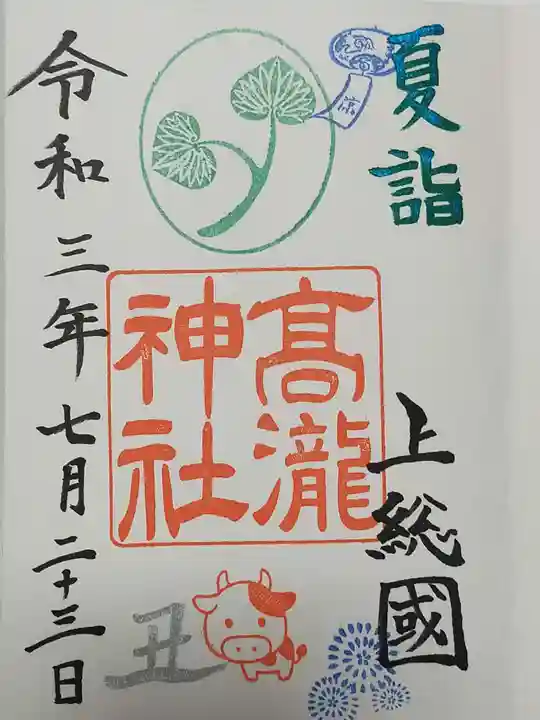 夏詣
上総國
涼
髙瀧
神社
丑
令和三年七月二十三日